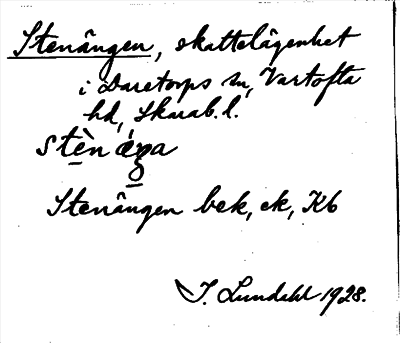 Stenängen, skattelägenhet
i Daretorps sn, Vartofta
hd, Skarab. l.
Stenängen bek, ek, Kb
I. Lundahl 1928.